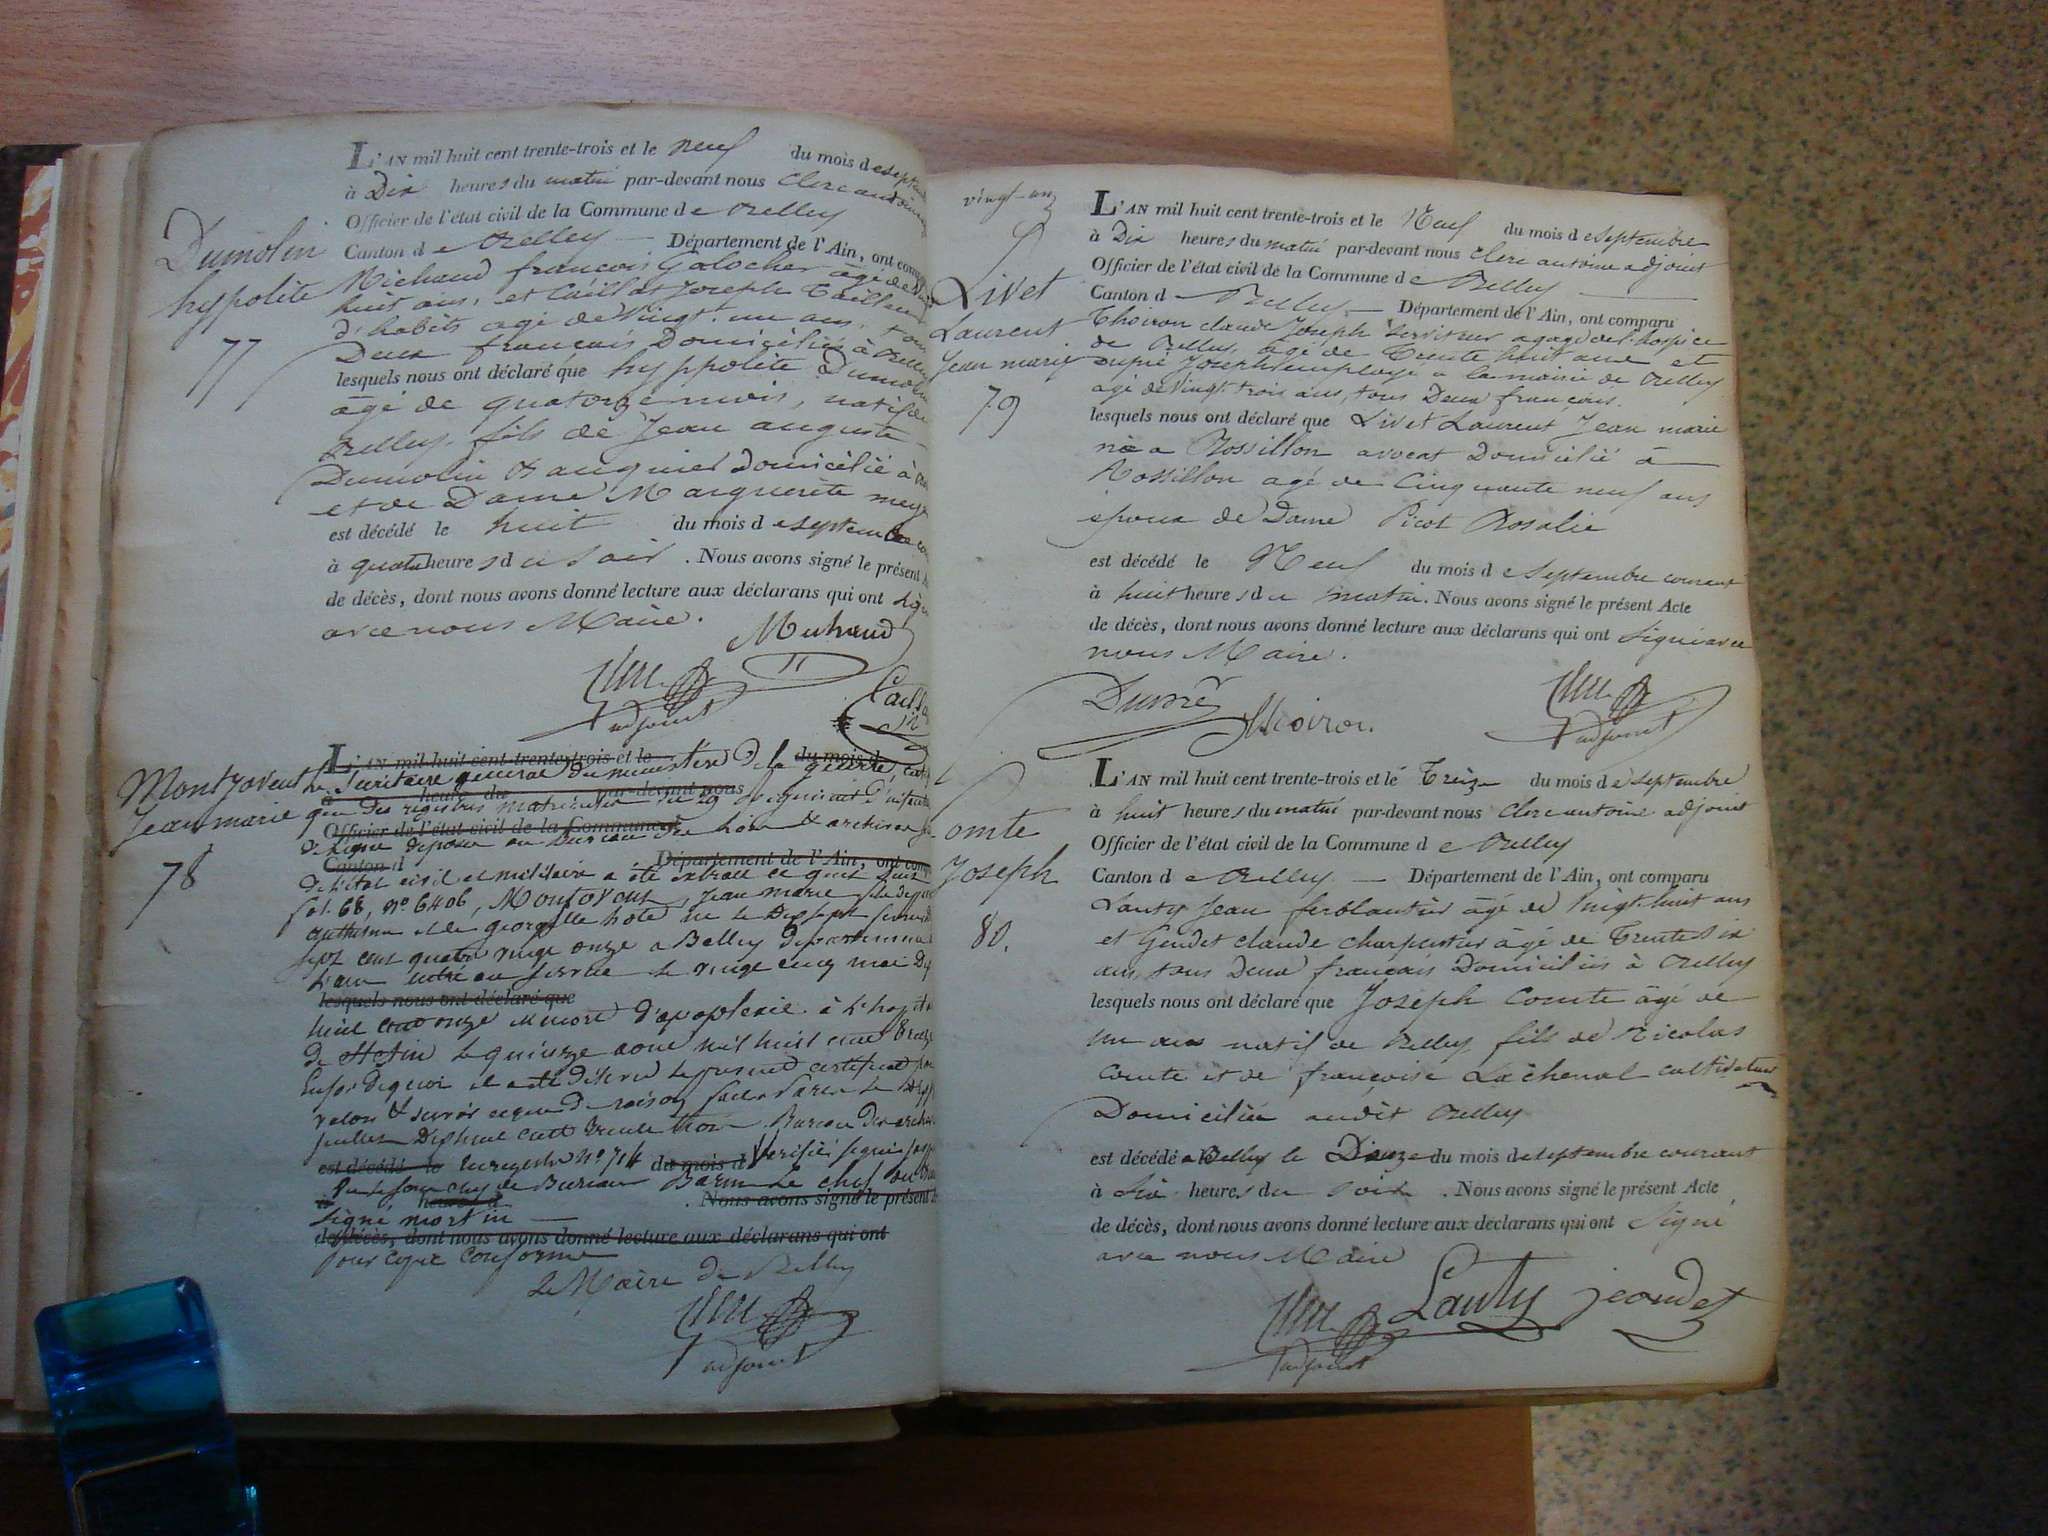 L'AN mil huit cent trente-trois et le neuf du mois de
à Dix heures du matin par-devant nous Clerc
Officier de l'état civil de la Commune de Belley
Canton de Belley Département de l'Ain, ont
Dumolin
hyppolite
77
Michaud françois Galocher âgé de
huit ans, et Caillat Joseph Tailleur
d'habits agé de Vingt un ans, tous
Deux français Domiciliés à Belley
lesquels nous ont déclaré que hyppolite Dumolin
âgé de quatorze mois, natif de
Belley, fils de Jean auguste
Dumolin Domicilié à
et de Dame Marguerite
est décédé le huit du mois de septembre
à quatre heures du Soir . Nous avons signé le présent
de décès, dont nous avons donné lecture aux déclarans qui ont
avec nous Maire.
Michaud
Clerc
adjoint
L'AN mil huit cent trente-trois et le du mois d
Le Secrétaire général du ministère de la guerre,
à heure du par-devant nous
que des registres matricules du 29 d'
Officier de l'état civil de la Commune d
de Ligne déposés au Bureau des
Canton d Département de l'Ain, ont
Jean marie
78
de l'état civil et militaire a été extrait ce qui suit
fol. 68, n° 6406, Jean marie fils de
et de né le Dix sept
sept cent quatre vingt onze a Belley département
L'ain entré au service le vingt cinq mai
lesquels nous ont déclaré que
huit cent onze mort d'apoplexie à L'
de le quinze aout mil huit cent
En foi de quoi il a été délivré le présent certificat
valoir & servir ce que de raison fait à Paris le
juillet Dix huit cent trente trois. Bureau des
est décédé le Enregistré N° 714 du mois d Vérifié signé
Bureau Le chef
à heures d . Nous avons signé le présent
Signé martin
de décès, dont nous avons donné lecture aux déclarans qui ont
pour copie conforme
Le Maire de Belley
Clerc
adjoint
vingt-un
L'AN mil huit cent trente-trois et le Neuf du mois de septembre
à Dix heures du matin par-devant nous Clerc antoine adjoint
Officier de l'état civil de la Commune de Belley
Canton d Belley Département de l'Ain, ont comparu
Livet
Laurent
Jean marie
79
Thoiron claude Joseph serviteur a gage de l'hospice
de Belley, agé de Trente huit ans et
Dupré Joseph employé a la mairie de Belley
agé de Vingt trois ans, tous Deux français.
lesquels nous ont déclaré que Livet Laurent Jean marie
né a Rossillon avocat Domicilié à
Rossillon agé de Cinquante neuf ans
époux de Dame Picot Rosalie
est décédé le Neuf du mois de Septembre courant
à huit heures du matin. Nous avons signé le présent Acte
de décès, dont nous avons donné lecture aux déclarans qui ont Signé avec
nous Maire.
Dupré
Thoiron.
Clerc
adjoint
L'AN mil huit cent trente-trois et le Treize du mois de septembre
à huit heures du matin par-devant nous Clerc antoine adjoint
Officier de l'état civil de la Commune de Belley
Canton de Belley Département de l'Ain, ont comparu
Comte
Joseph
80.
Lauty Jean ferblantier âgé de Vingt huit ans
et claude charpentier âgé de Trente Six
ans, tous Deux français Domiciliés à Belley
lesquels nous ont déclaré que Joseph Comte âgé de
un ans natif de Belley fils de Nicolas
Comte et de françoise Lachenal cultivateurs
Domiciliés audit Belley
est décédé a Belley le Douze du mois de septembre courant
à Six heures du Soir . Nous avons signé le présent Acte
de décès, dont nous avons donné lecture aux déclarans qui ont Signé
avec nous Maire
Clerc Lauty jeandet
adjoint